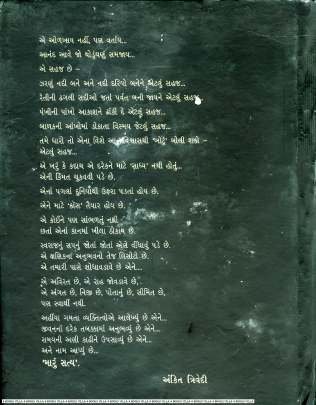 એ ઓળખાય નહીં, પણ વર્તાય...
આનંદ આવે જો થોડુંઘણું સમજાય...
એ સહજ છે –
ઝરણું નદી બને અને નદી દરિયો બનેને એટલું સહજ...
રેતીની ઢગલી સદીઓ જતાં પર્વત બની જાયને એટલું સહજ
પંખીની પાંખો આકાશને ઢાંકી દે એટલું સહજ...
બાળકની આંખોમાં ડોકાતા વિસ્મય જેટલું સહજ...
તમે ધારો તો એના વિશે આત્મવિશ્વાસથી 'ખોટું' બોલી શકો –
એટલું સહજ...
એ ખરું કે કદાચ એ દરેકને માટે 'સાધ્ય' નથી હોતું...
એની કિંમત ચૂકવવી પડે છે.
એનાં પગલાં દુનિયાથી ઉફરા પડતાં હોય છે.
એને માટે 'ક્રોસ' તૈયાર હોય છે.
એ કોઈને પણ સાંભળતું નથી
છતાં એનાં કાનમાં ખીલા ઠોકાય છે.
સ્વરાજનું સપનું જોતાં જોતાં એણે વીંધાવું પડે છે.
એ ક્ષણિકનાં અનુભવનો તેજ લિસોટો છે.
એ તમારી પાસે શોધાવડાવે છે એને...
એ અવિરત છે, એ રાહ જોવડાવે છે,
એ અંગત છે, નિજી છે, પોતાનું છે, સીમિત છે,
પણ સ્વાર્થી નથી.
અહીંયા ગમતા વ્યક્તિત્વોએ આલેખ્યું છે એને...
જીવનનાં દરેક તબક્કામાં અનુભવ્યું છે એને...
સમયની અણી કાઢીને ઉપસાવ્યું છે એને...
અને નામ આપ્યું છે...
'મારું સત્ય'.
અંકિત ત્રિવેદી